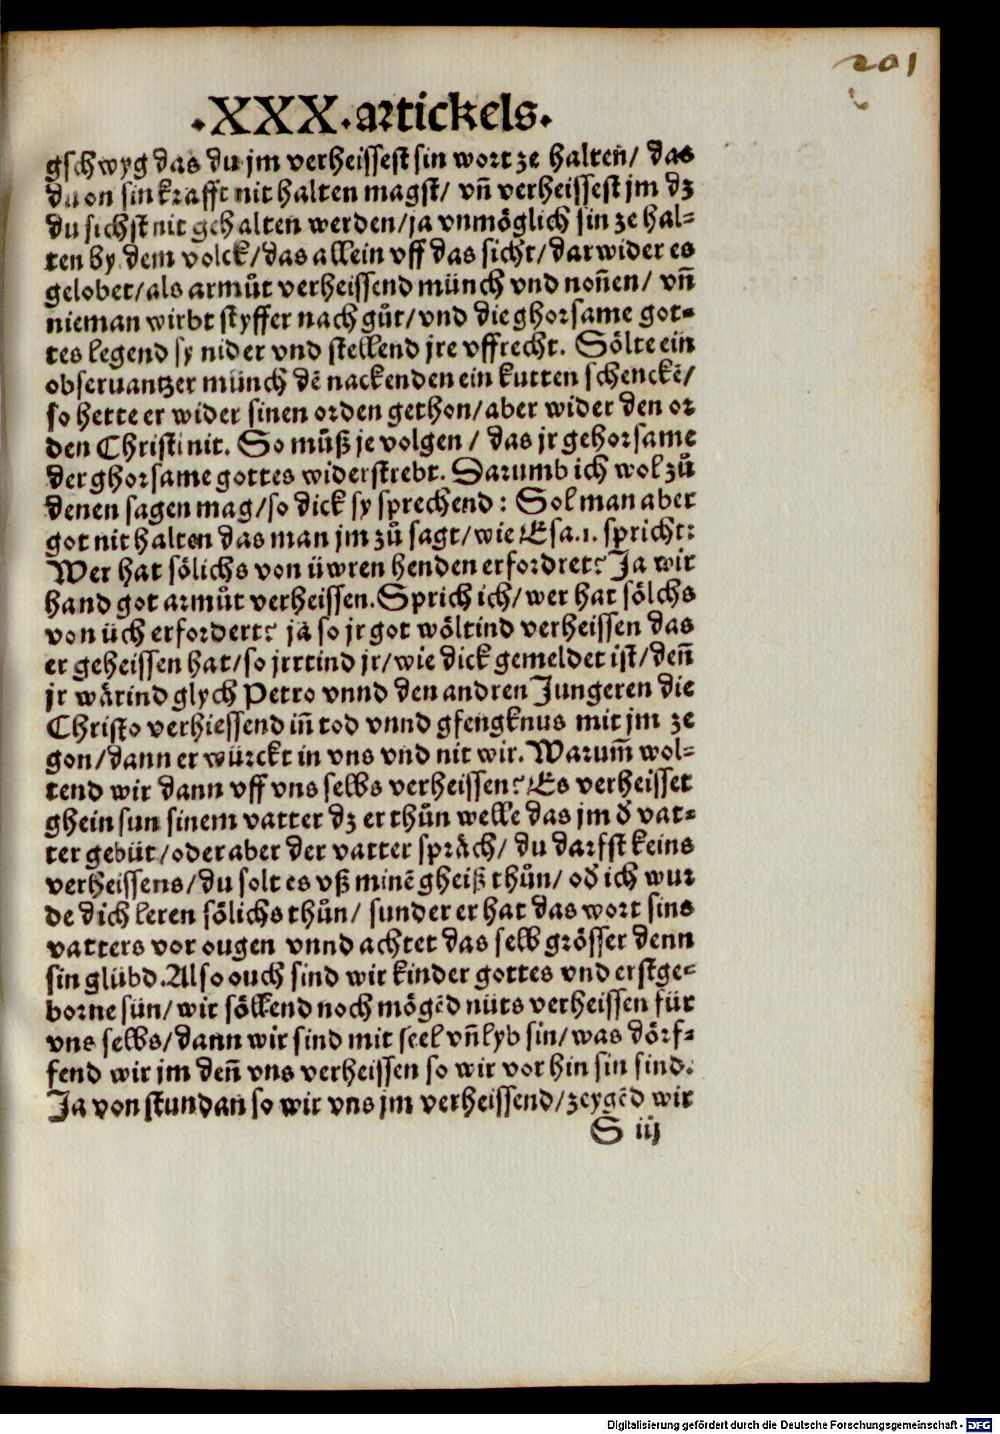 201
.XXX. artickels.
gschwyg das du jm verheissest sin wort ze halten / das
du on sin krafft nit halten magst / vn̄ verheissest jm dz
du sichst nit gehalten werden / ja vnmöglich sin ze hal⸗
ten by dem volck / das allein vff das sicht / dar wider es
gelobet / als armůt verheissend münch vnd non̄en / vn̄
nieman wirbt styffer nach gůt / vnd die ghorsame got⸗
tes legend sy nider vnd stellend jre vffrecht. Sölte ein
obseruantzer münch dē nackenden ein kutten schenckē /
so hette er wider sinen orden gethon / aber wider den or
den Christi nit. So můß je volgen / das jr gehorsame
der ghorsame gottes widerstrebt. Darumb ich wol zů
denen sagen mag / so dick sy sprechend : Sol man aber
got nit halten das man jm zů sagt / wie Esa.1. spricht:
Wer hat sölichs von üwren henden erfordret? Ja wir
hand got armůt verheissen. Sprich ich / wer hat sölchs
von üch erfordert? ja so jr got wöltind verheissen das
er geheissen hat / so jrrtind jr / wie dick gemeldet ist / den̄
jr wärind glych Petro vnnd den andren Jungeren die
Christo verhiessend in̄ tod vnnd gfengknus mit jm ze
gon / dann er würckt in vns vnd nit wir. Warum̄ wol⸗
tend wir dann vff vns selbs verheissen? Es verheisset
ghein sun sinem vatter dz er thůn welle das jm d̄ vat⸗
ter gebüt / oder aber der vatter spräch / du darfst keins
verheissens / du solt es vß minē gheiß thůn / od̄ ich wur
de dich leren sölichs thůn / sunder er hat das wort sins
vatters vor ougen vnnd achtet das selb grösser denn
sin glübd. Also ouch sind wir kinder gottes vnd erstge⸗
borne sün / wir söllend noch mögēd nüts verheissen für
vns selbs / dann wir sind mit seel vn̄ lyb sin / was dörf⸗
fend wir jm den̄ vns verheissen so wir vorhin sin sind.
Ja von stundan so wir vns jm verheissend / zeygēd wir
S iij
Digitalisierung gefördert durch die Deutsche Forschungsgemeinschaft - DFG